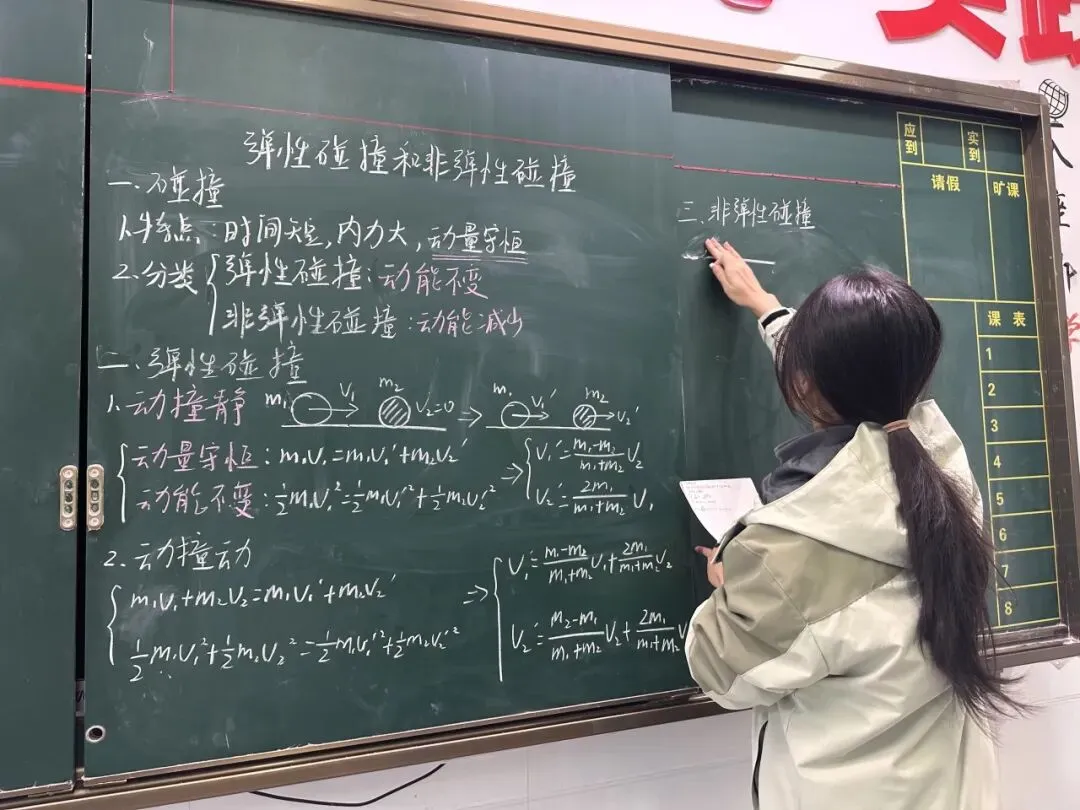 弹性碰撞和非弹性碰撞
一.碰撞
1.特点:时间短,内力大,动量守恒
2.分类{弹性碰撞:动能不变
非弹性碰撞:动能减少
二.弹性碰撞
1.动撞静 m₁ V₁ m₂ V₂=0 ⇒ m₁ V₁′ m₂ V₂′
{动量守恒:m₁V₁=m₁V₁′+m₂V₂′
动能不变:½m₁V₁²=½m₁V₁′²+½m₂V₂′²
⇒{V₁′=(m₁-m₂)/(m₁+m₂) V₂
V₂′=2m₁/(m₁+m₂) V₁
2.动撞动
{m₁V₁+m₂V₂=m₁V₁′+m₂V₂′
½m₁V₁²+½m₂V₂²=½m₁V₁′²+½m₂V₂′²
⇒{V₁′=(m₁-m₂)/(m₁+m₂) V₁+2m₁/(m₁+m₂) V₂
V₂′=(m₂-m₁)/(m₁+m₂) V₂+2m₁/(m₁+m₂) V
三.非弹性碰撞
应到 实到
请假 旷课
课表
1
2
3
4
5
6
7
8